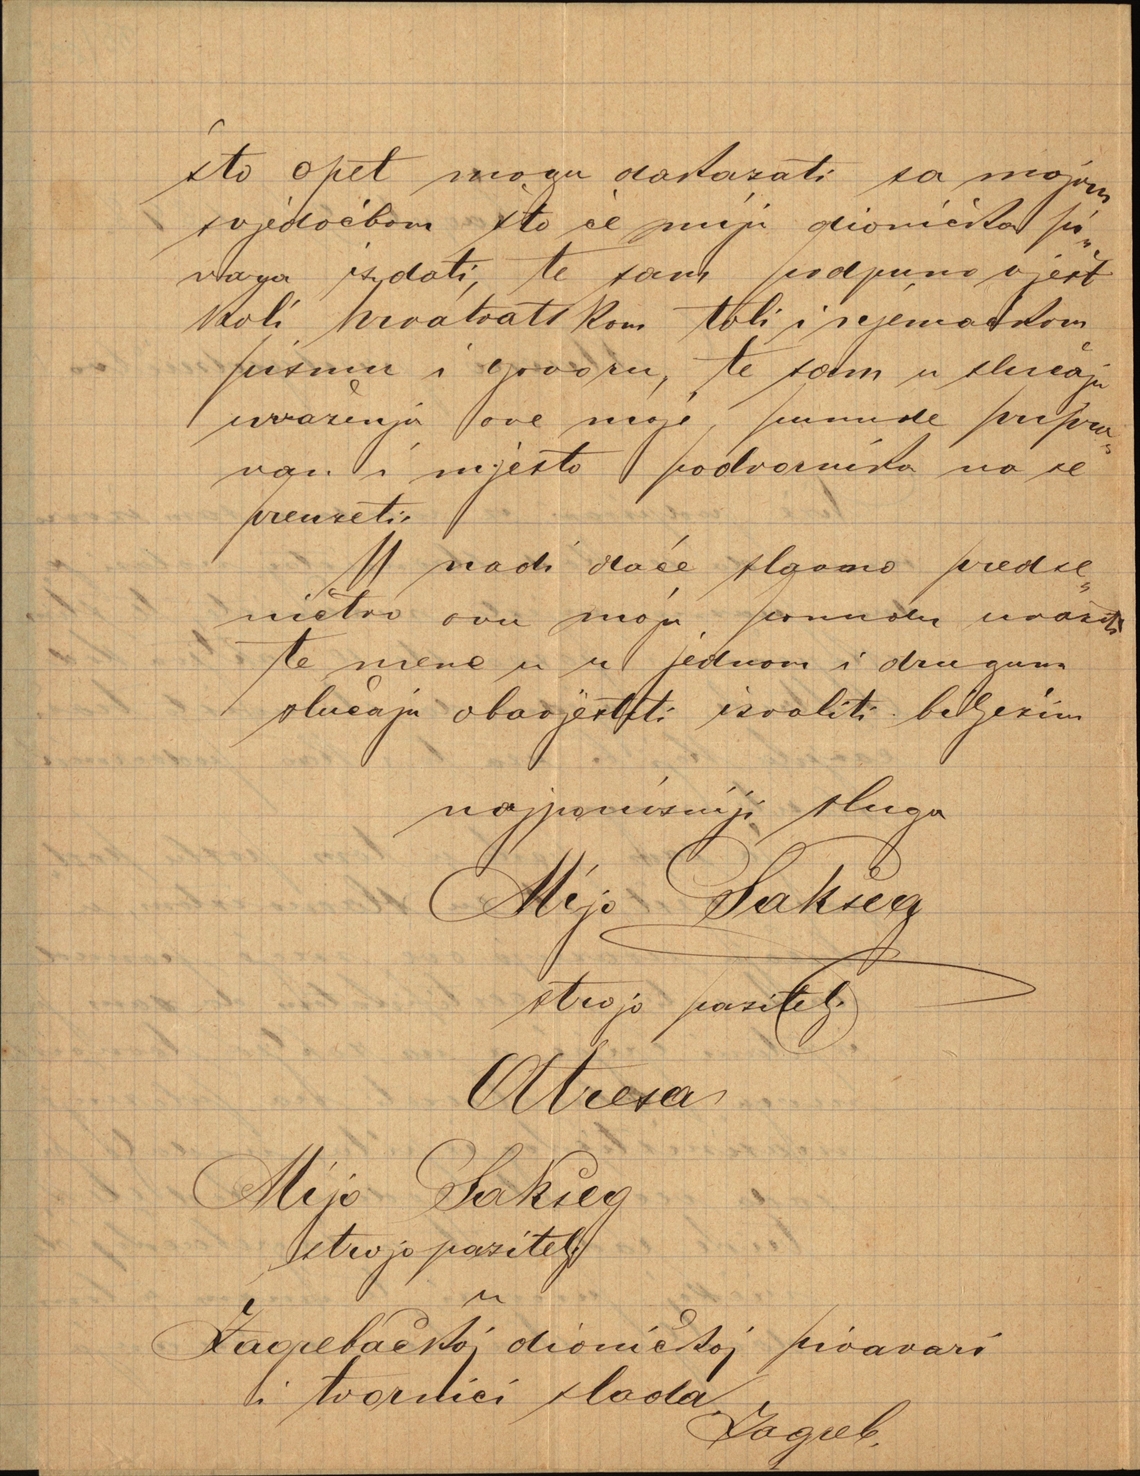 što opet mogu dakazati sa mojom
svjedočbom što če mi ju dionička pi„
vara izdati, te sam podpuno vješt
koli hrvatskom toli i njemačkom
pismu i govoru, te sam u slučaju
uvaženja ove moje ponude pripra„
van i mjesto podvornika na se
preuzeti.
U nadi daće slavno predse„
ničtvo ovu moju ponudu uvažiti
te mene u u jednom i drugom
slučaju obavjestiti izvoliti bilježim
najponizniji sluga
Mijo Sakseg
strojo pazitelj.
Atresa
Mijo Sakseg
strojopazitelj
u
Zagrebačkoj dioničkoj pivavari
i tvornici slada
Zagreb.